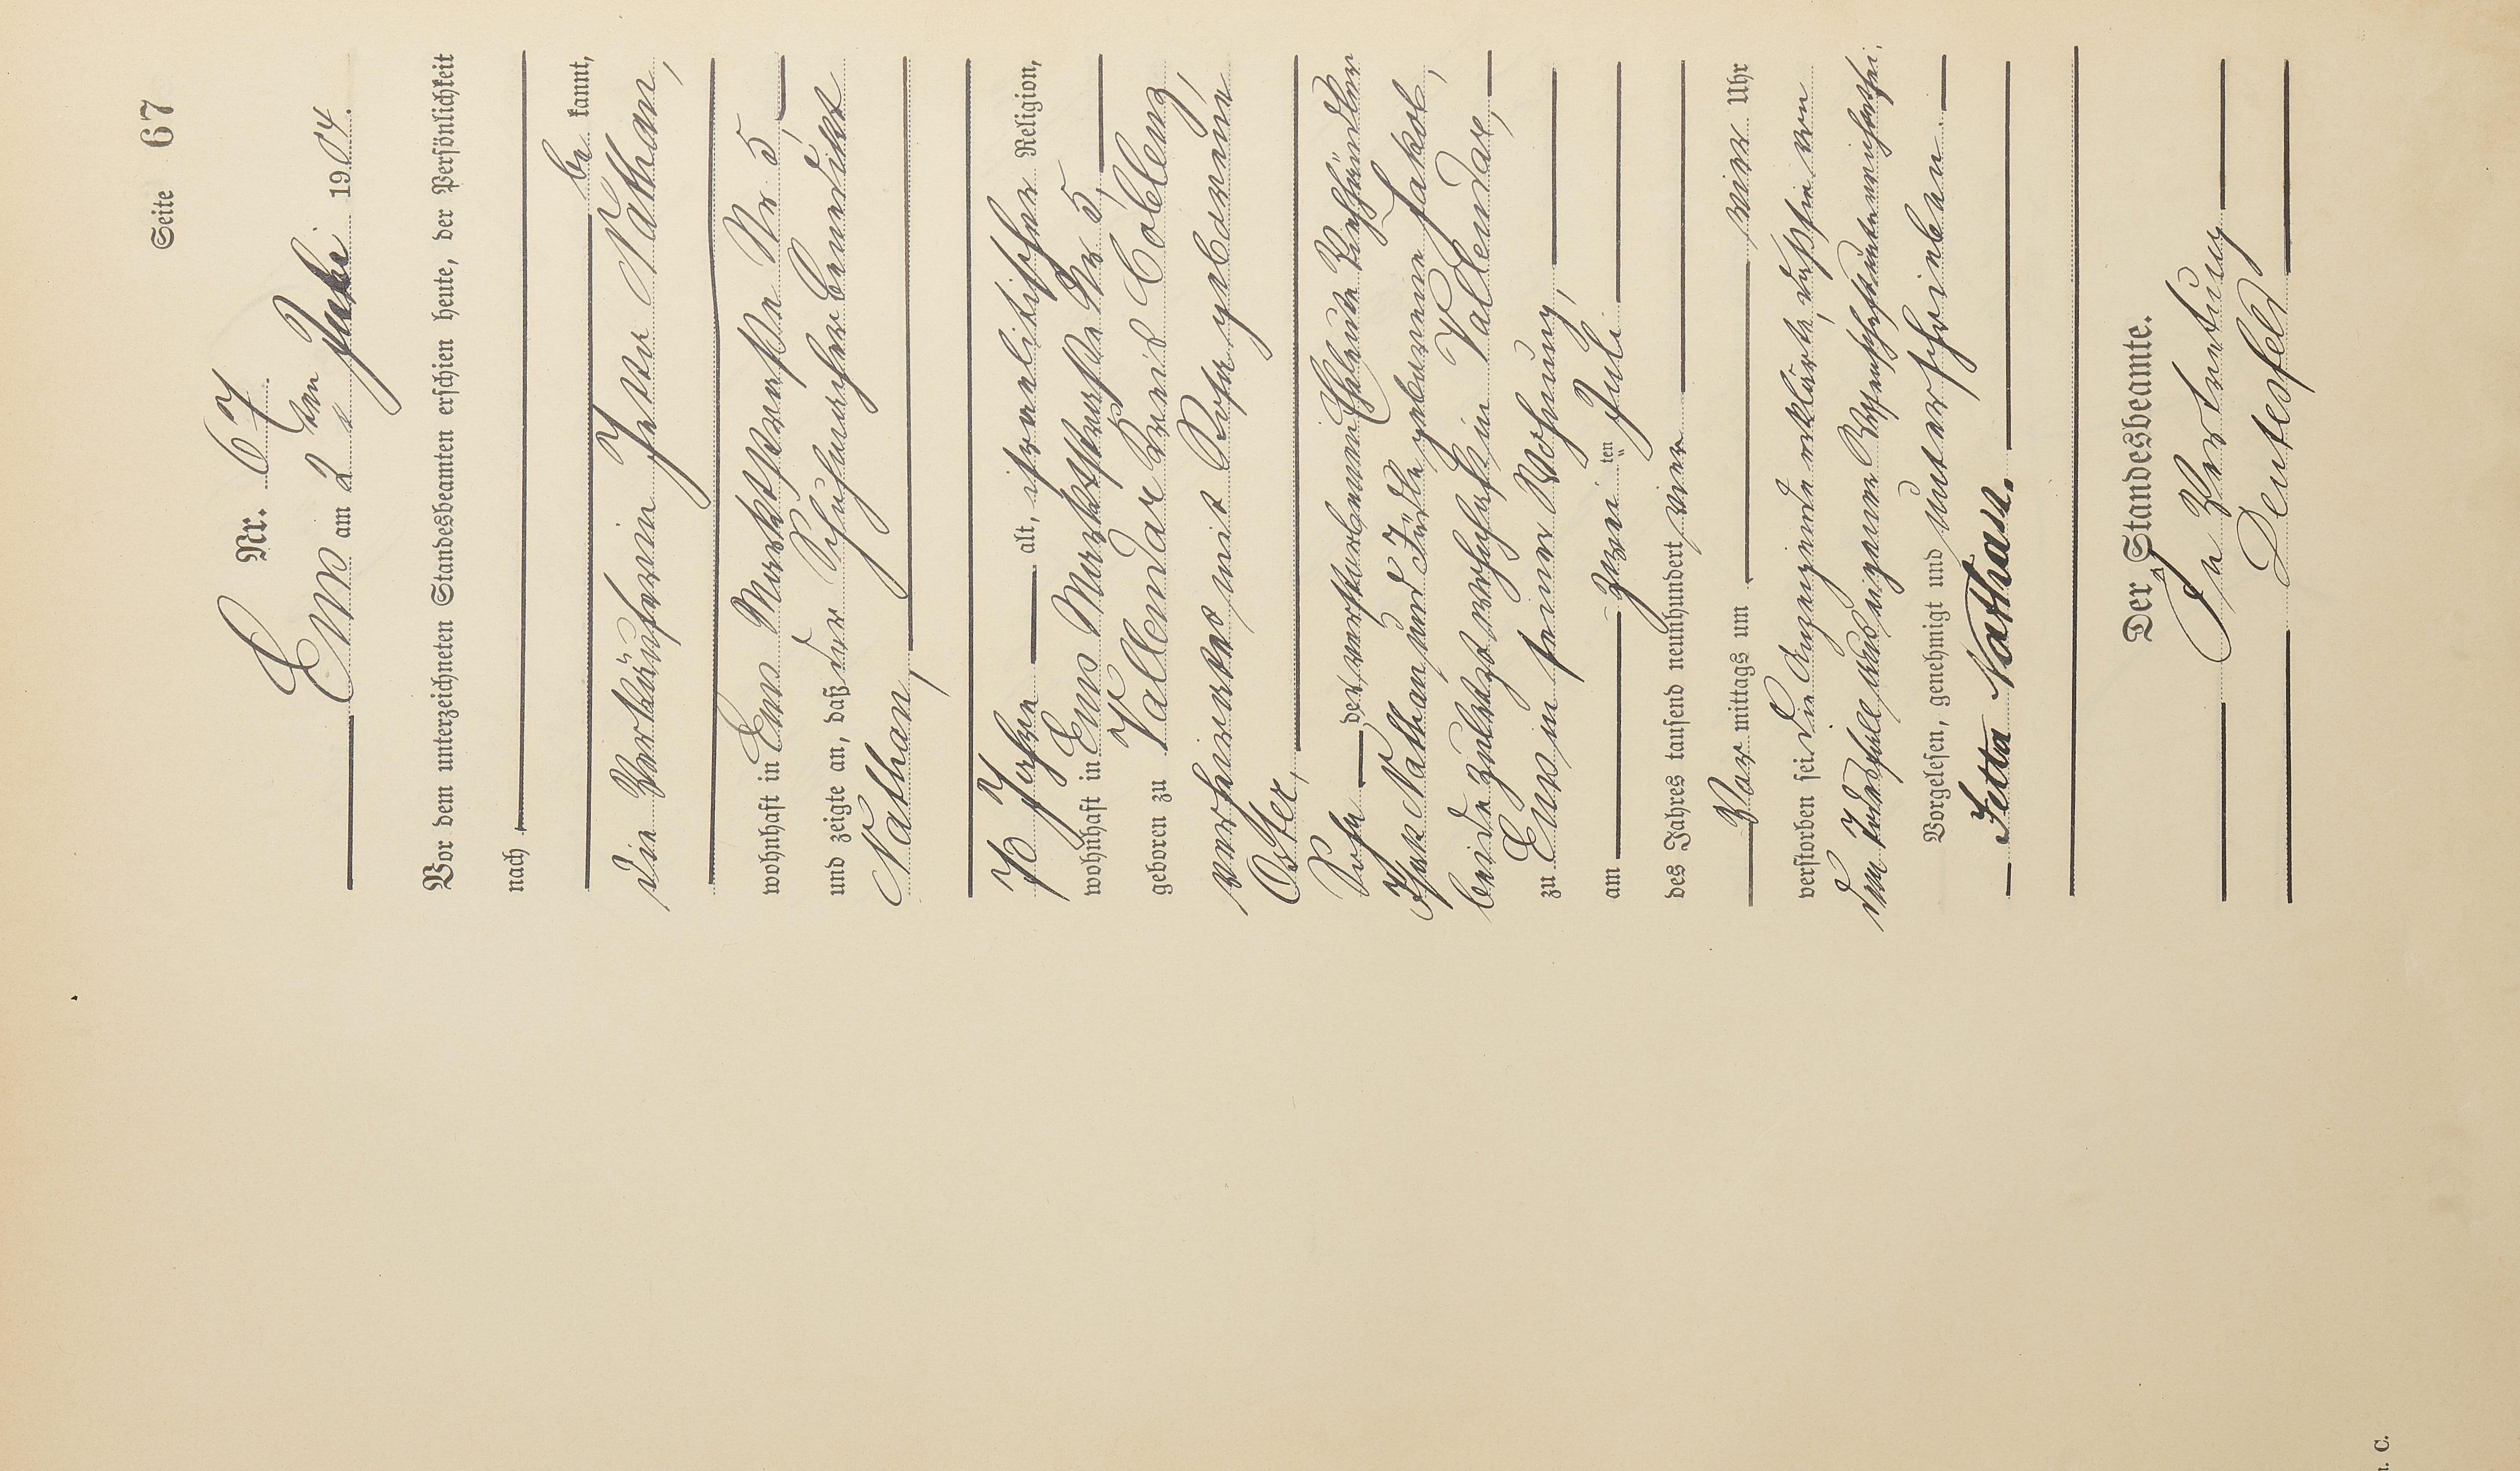 Seite 67
Nr. 67.
Ems am 2ten Juli 1904.
Vor dem unterzeichneten Standesbeamten erschien heute, der Persönlichkeit
nach
be kannt,
die Verkäuferin Jetta Nathan,
wohnhaft in Ems Marktstraße Nr 5,
und zeigte an, daß der Schuhmacher Benedikt
Nathan,
Jahre alt, israelitischer Religion,
wohnhaft in Ems Marktstraße Nr 5,
geboren zu Vallendar Kreis Coblenz,
verheiratet mit Rosa geborenen
Oster,
Sohn der verstorbenen Eheleute
Isak Nathan und Jüdle geborenen Jakob,
beide zuletzt wohnhaft in Vallendar,
zu Ems in seiner Wohnung,
am zwei ten Juli
des Jahres tausend neunhundert vier
Vor mittags um vier Uhr
verstorben sei. Die Anzeigende erklärte, daß sie von
dem Todesfalle aus eigener Wissenschaft unterrichtet sei.
Vorgelesen, genehmigt und unterschrieben
Jetta Nathan.
Der Standesbeamte.
In Vertretung
Deutesfeld
C.